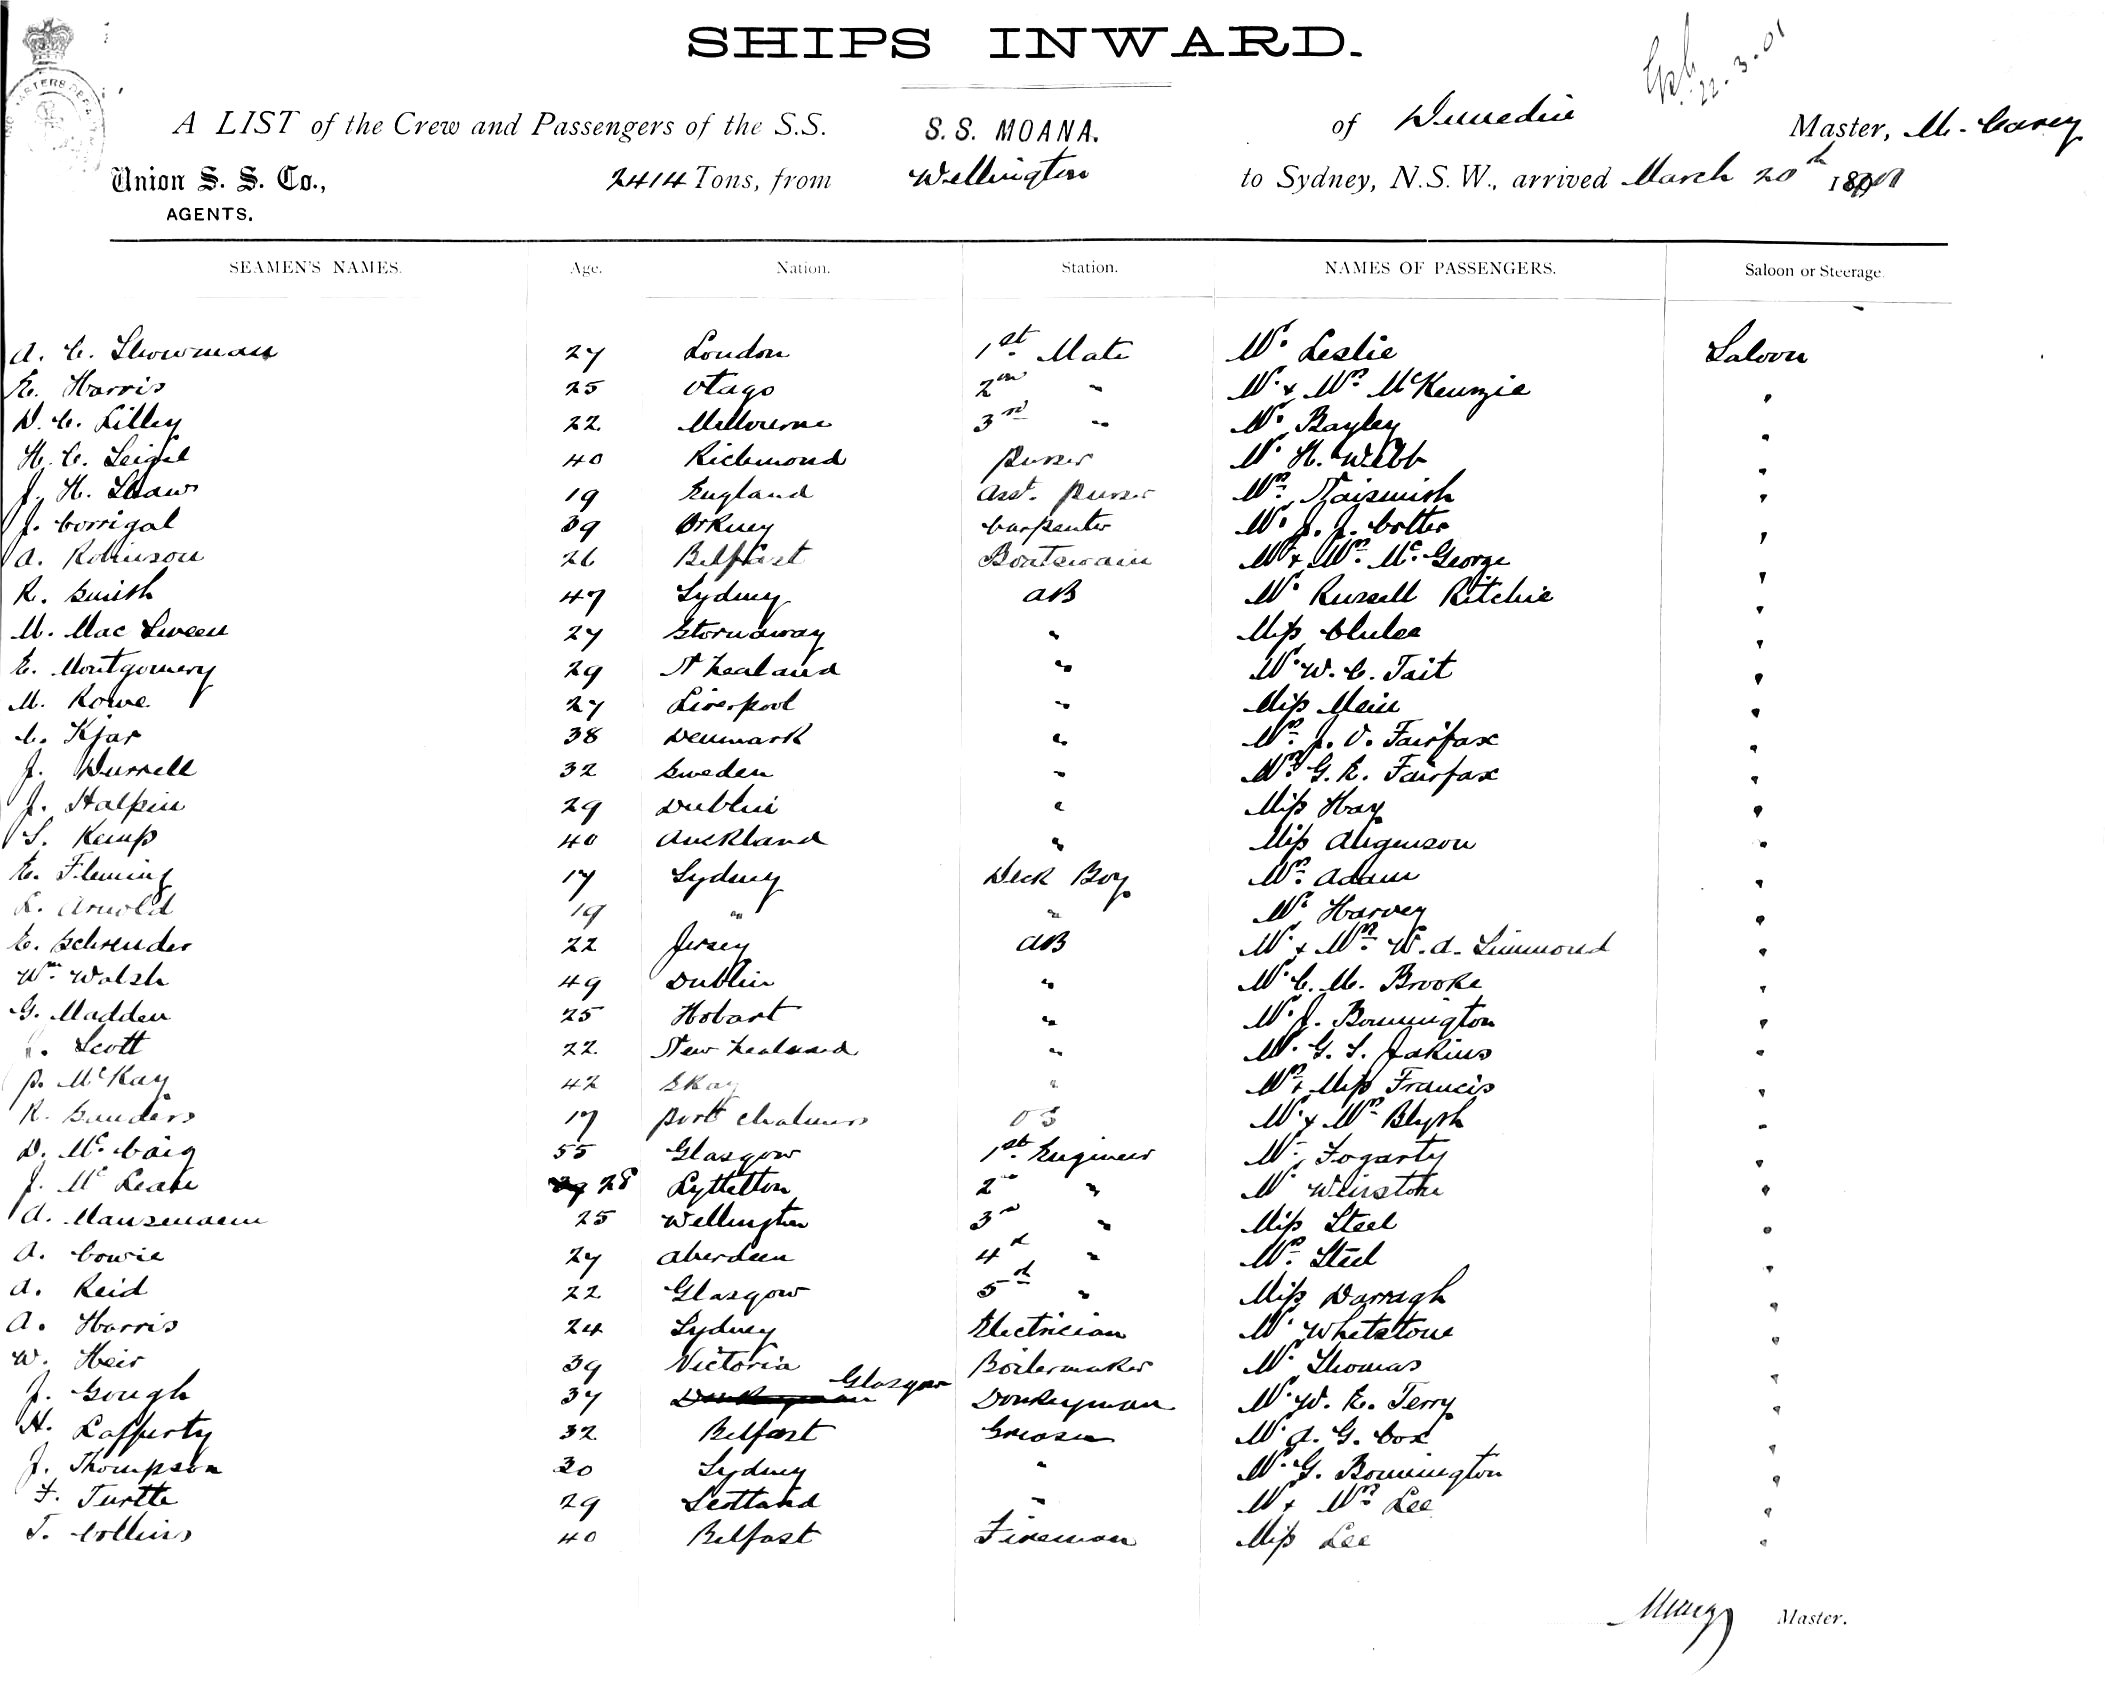 SHIPS INWARD.
22.3.01
A LIST of the Crew and Passengers of the S.S. S.S. MOANA. of Dunedin Master, M. Carey
Union S. S. Co., 2414 Tons, from Wellington to Sydney, N.S.W., arrived March 20th 1901
AGENTS.
SEAMEN'S NAMES. Age. Nation. Station. NAMES OF PASSENGERS. Saloon or Steerage.
A. C. Showman 27 London 1st. Mate Mr. Leslie Saloon
E. Harris 25 Otago 2nd " Mr. & Mrs McKenzie "
D. C. Lilley 22 Melbourne 3rd " Mr. Bayley "
H. C. 40 Richmond Purser Mr. H. Webb "
J. H. Shaw 19 England Asst. Purser Mrs. Naismith "
J. Corrigal 39 Orkney Carpenter Mr. J. J. Cotter "
A. Robinson 26 Belfast Boatswain Mr & Mrs. McGeorge "
R. Smith 47 Sydney AB Mr. Russell Ritchie "
M. Mac Sween 27 Stornaway " Miss Clulee "
E. Montgomery 29 N Zealand " Mr. W. C. Tait "
M. Rowe 27 Liverpool " Miss Mein "
C. Kjar 38 Denmark " Mrs. J. O. Fairfax "
J. Durrell 32 Sweden " Mrs G. E. Fairfax "
J. Halpin 29 Dublin " Miss Hay "
S. Kemp 40 Auckland " Miss "
E. Fleming 17 Sydney Deck Boy Mrs. Adam "
L. Arnold 19 " " Mr. Harvey "
E. Schreuder 22 Jersey AB Mr. & Mrs W. A. Simmond "
Wm. Walsh 49 Dublin " Mr. C. M. Brooke "
G. Madden 25 Hobart " Mr. J. Bonnington "
Scott 22 New Zealand " Mr. G. S. Jakins "
P. McKay 42 Skay " Mrs & Miss Francis "
R. Sanders 17 Port Chalmers OS Mr. & Mrs Blyth "
D. McCaig 55 Glasgow 1st. Engineer Mr. Fogarty "
J. McLean 28 Lyttelton 2nd " Mr "
A. 25 Wellington 3rd " Miss Steel "
A. Cowie 27 Aberdeen 4th " Mrs. Steel "
A. Reid 22 Glasgow 5th " Miss Darragh "
A. Harris 24 Sydney Electrician Mr Whetstone "
W. Heir 39 Victoria Boilermaker Mr. Thomas "
J. Gough 37 Donkeyman Glasgow Donkeyman Mr. W. E. Terry "
H. Lafferty 32 Belfast Greaser Mr A. G. Cox "
J. Thompson 30 Sydney " Mr. G. Bonnington "
F. Turtle 29 Scotland " Mr & Mrs Lee "
T. Collins 40 Belfast Fireman Miss Lee "
MCarey Master.